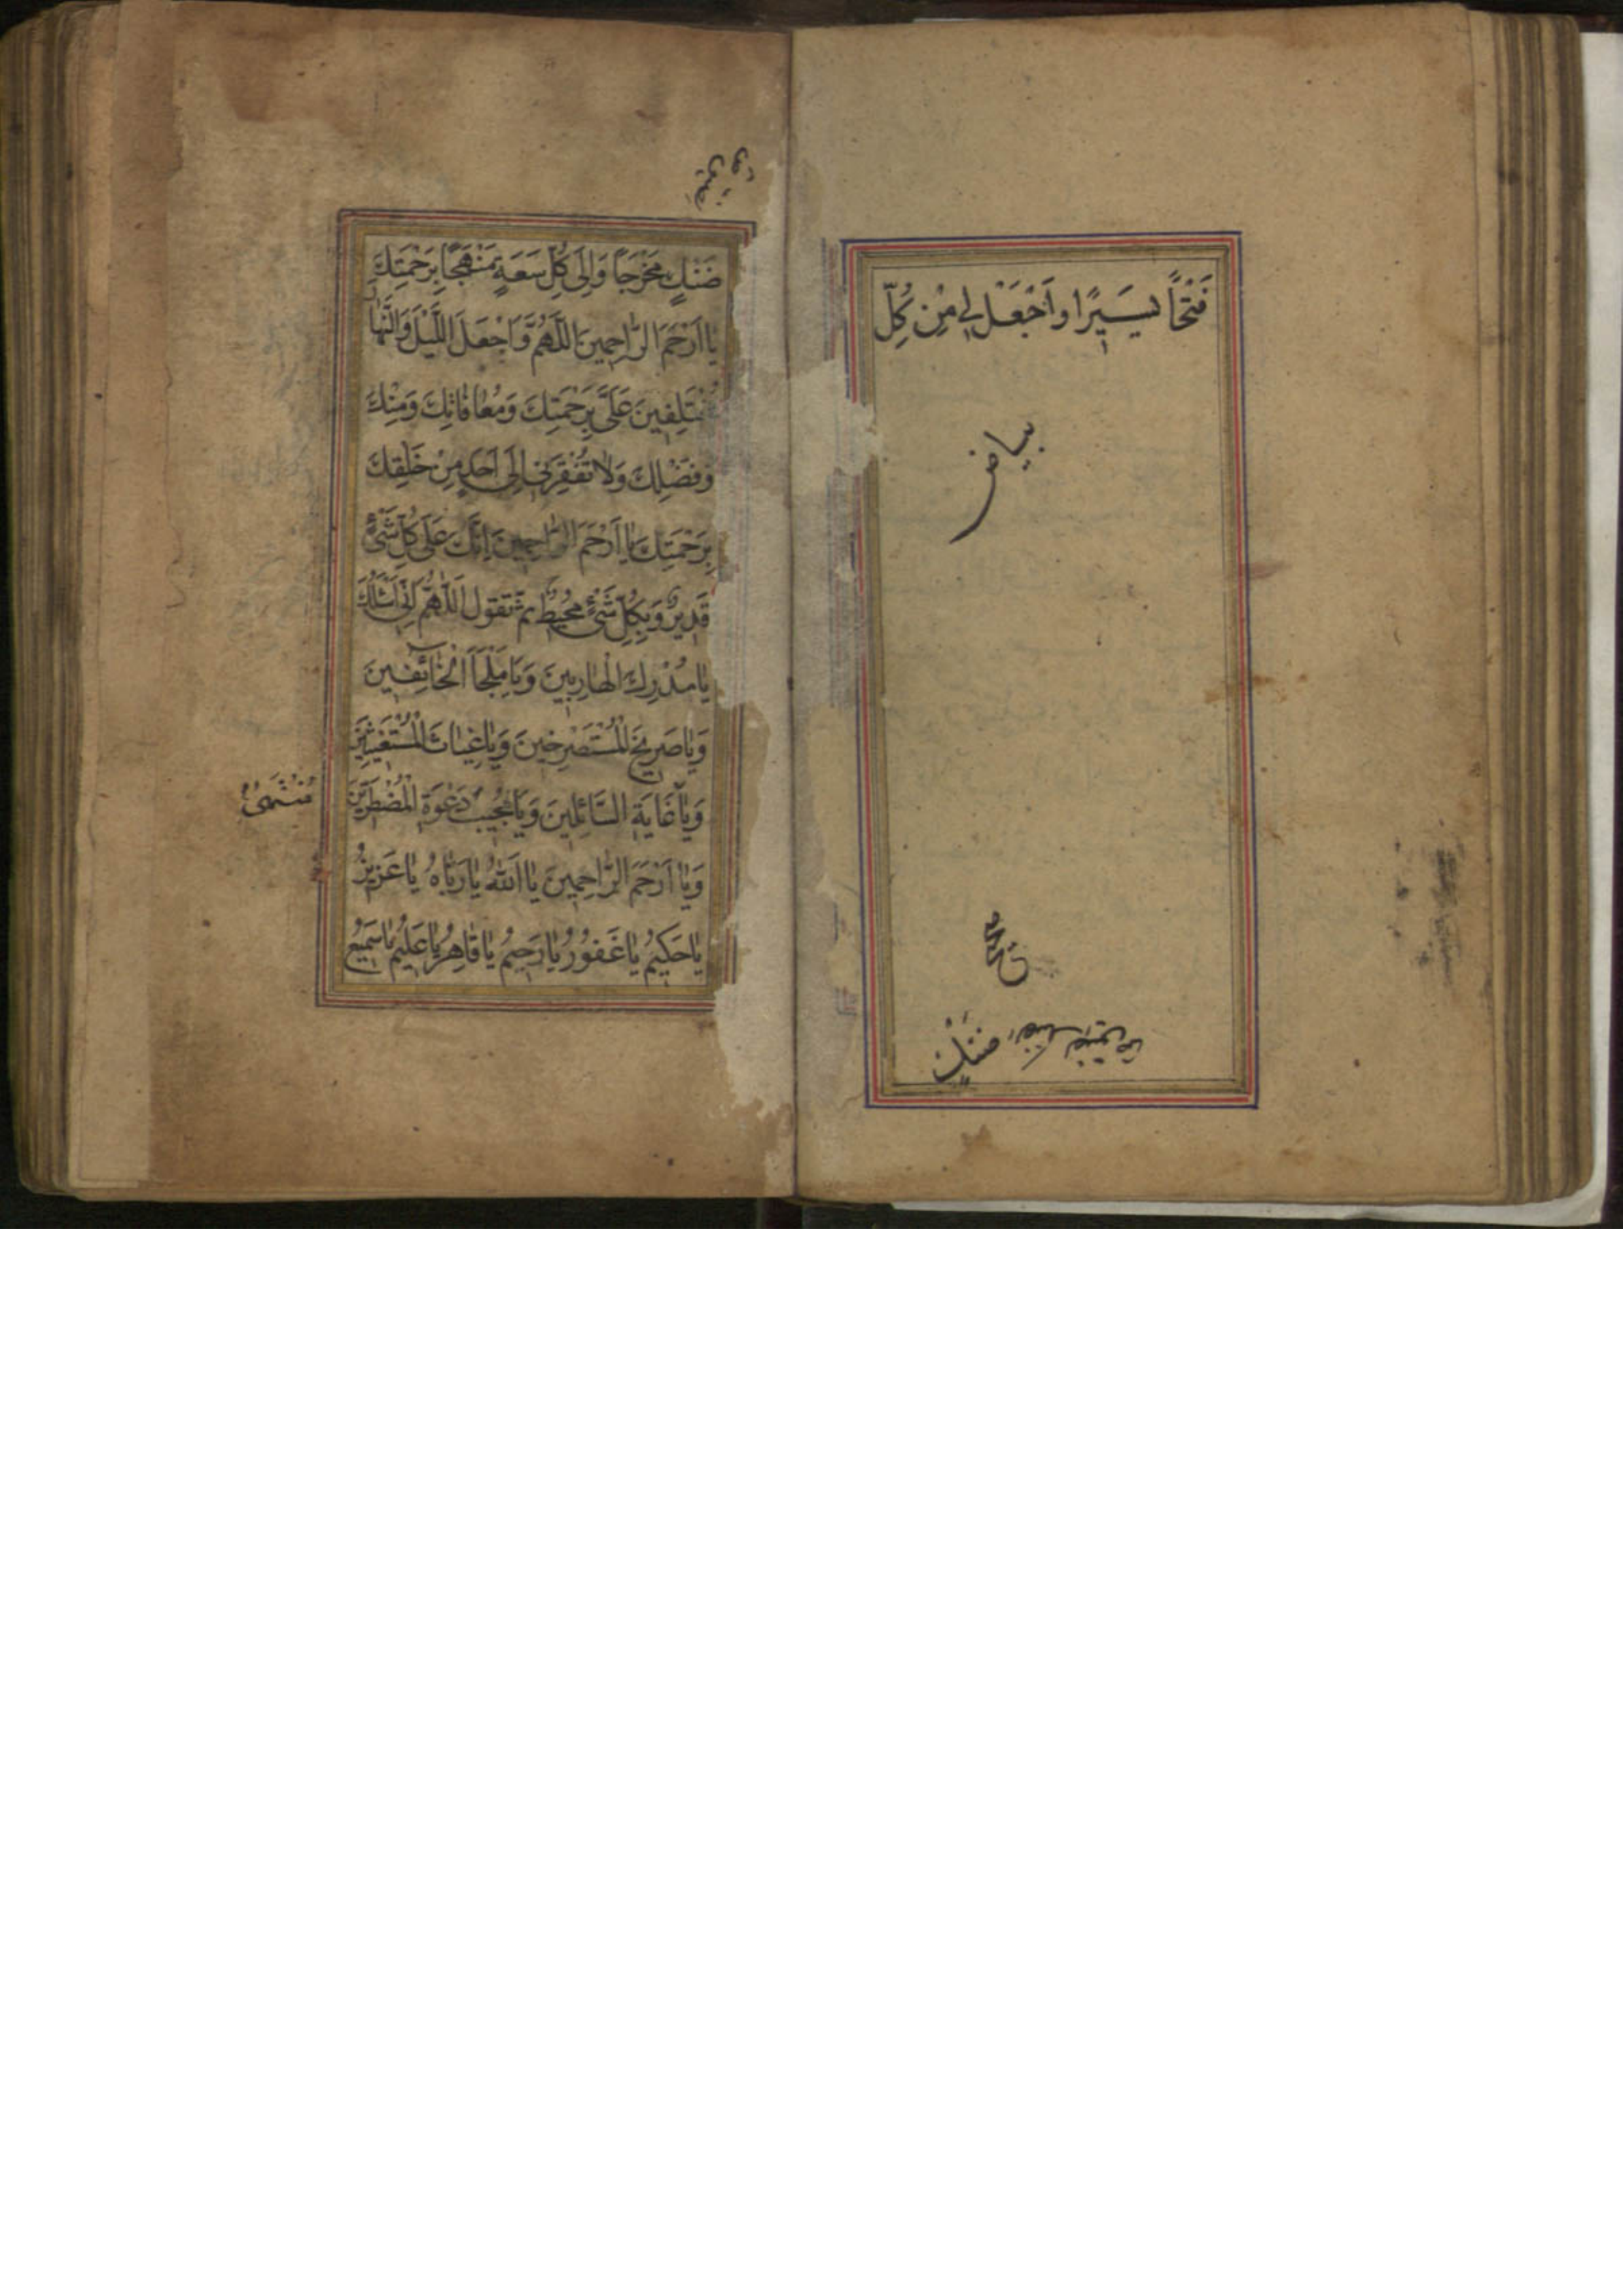 فَتْحًا يَسِيَرًا وَاَجْعَلْ لِي مِنْ كُلِّ
بياض
صح
ضَنْكٍ
ضَنْكٍ مَخْرَجًا وَاِلَى كُلِّ سَعَةٍ مَنْهَجًا بِرَحْمَتِكَ
يَا اَرْحَمَ الرَّاحِمِينَ اَللَّهُمَّ وَاجْعَلَ اللَّيْلَ وَالنَّهَارَ
مُخْتَلِفِينَ عَلَيَّ بِرَحْمَتِكَ وَمُعَافَاتِكَ وَمَنِّكَ
وَفَضْلِكَ وَلَا تُفْقِرَنِي اِلَى اَحَدٍ مِنْ خَلْقِكَ
بِرَحْمَتِكَ يَا اَرْحَمَ الرَّاحِمِينَ اِنَّكَ عَلَى كُلِّ شَيْءٍ
قَدِيرٌ وَبِكُلِّ شَيْءٍ مُحِيطٌ ثم تقول اَللَّهُمَّ اِنِّي اَسْئَلُكَ
يَا مُدْرِكَ الْهَارِبِينَ وَيَا مَلْجَأَ الْخَائِفِينَ
وَيَا صَرِيخَ الْمُسْتَصْرِخِينَ وَيَا غِيَاثَ الْمُسْتَغِيثِينَ
وَيَا غَايَةَ السَّائِلِينَ وَيَا مُجِيبَ دَعْوَةِ الْمُضْطَرِّينَ
مُنْتَهىٰ
وَيَا اَرْحَمَ الرَّاحِمِينَ يَا اَللّٰهُ يَا رَبَّاهُ يَا عَزِيزُ
يَا حَكِيمُ يَا غَفُورُ يَا رَحِيمُ يَا قَاهِرُ يَا عَلِيمُ يَا سَمِيعُ